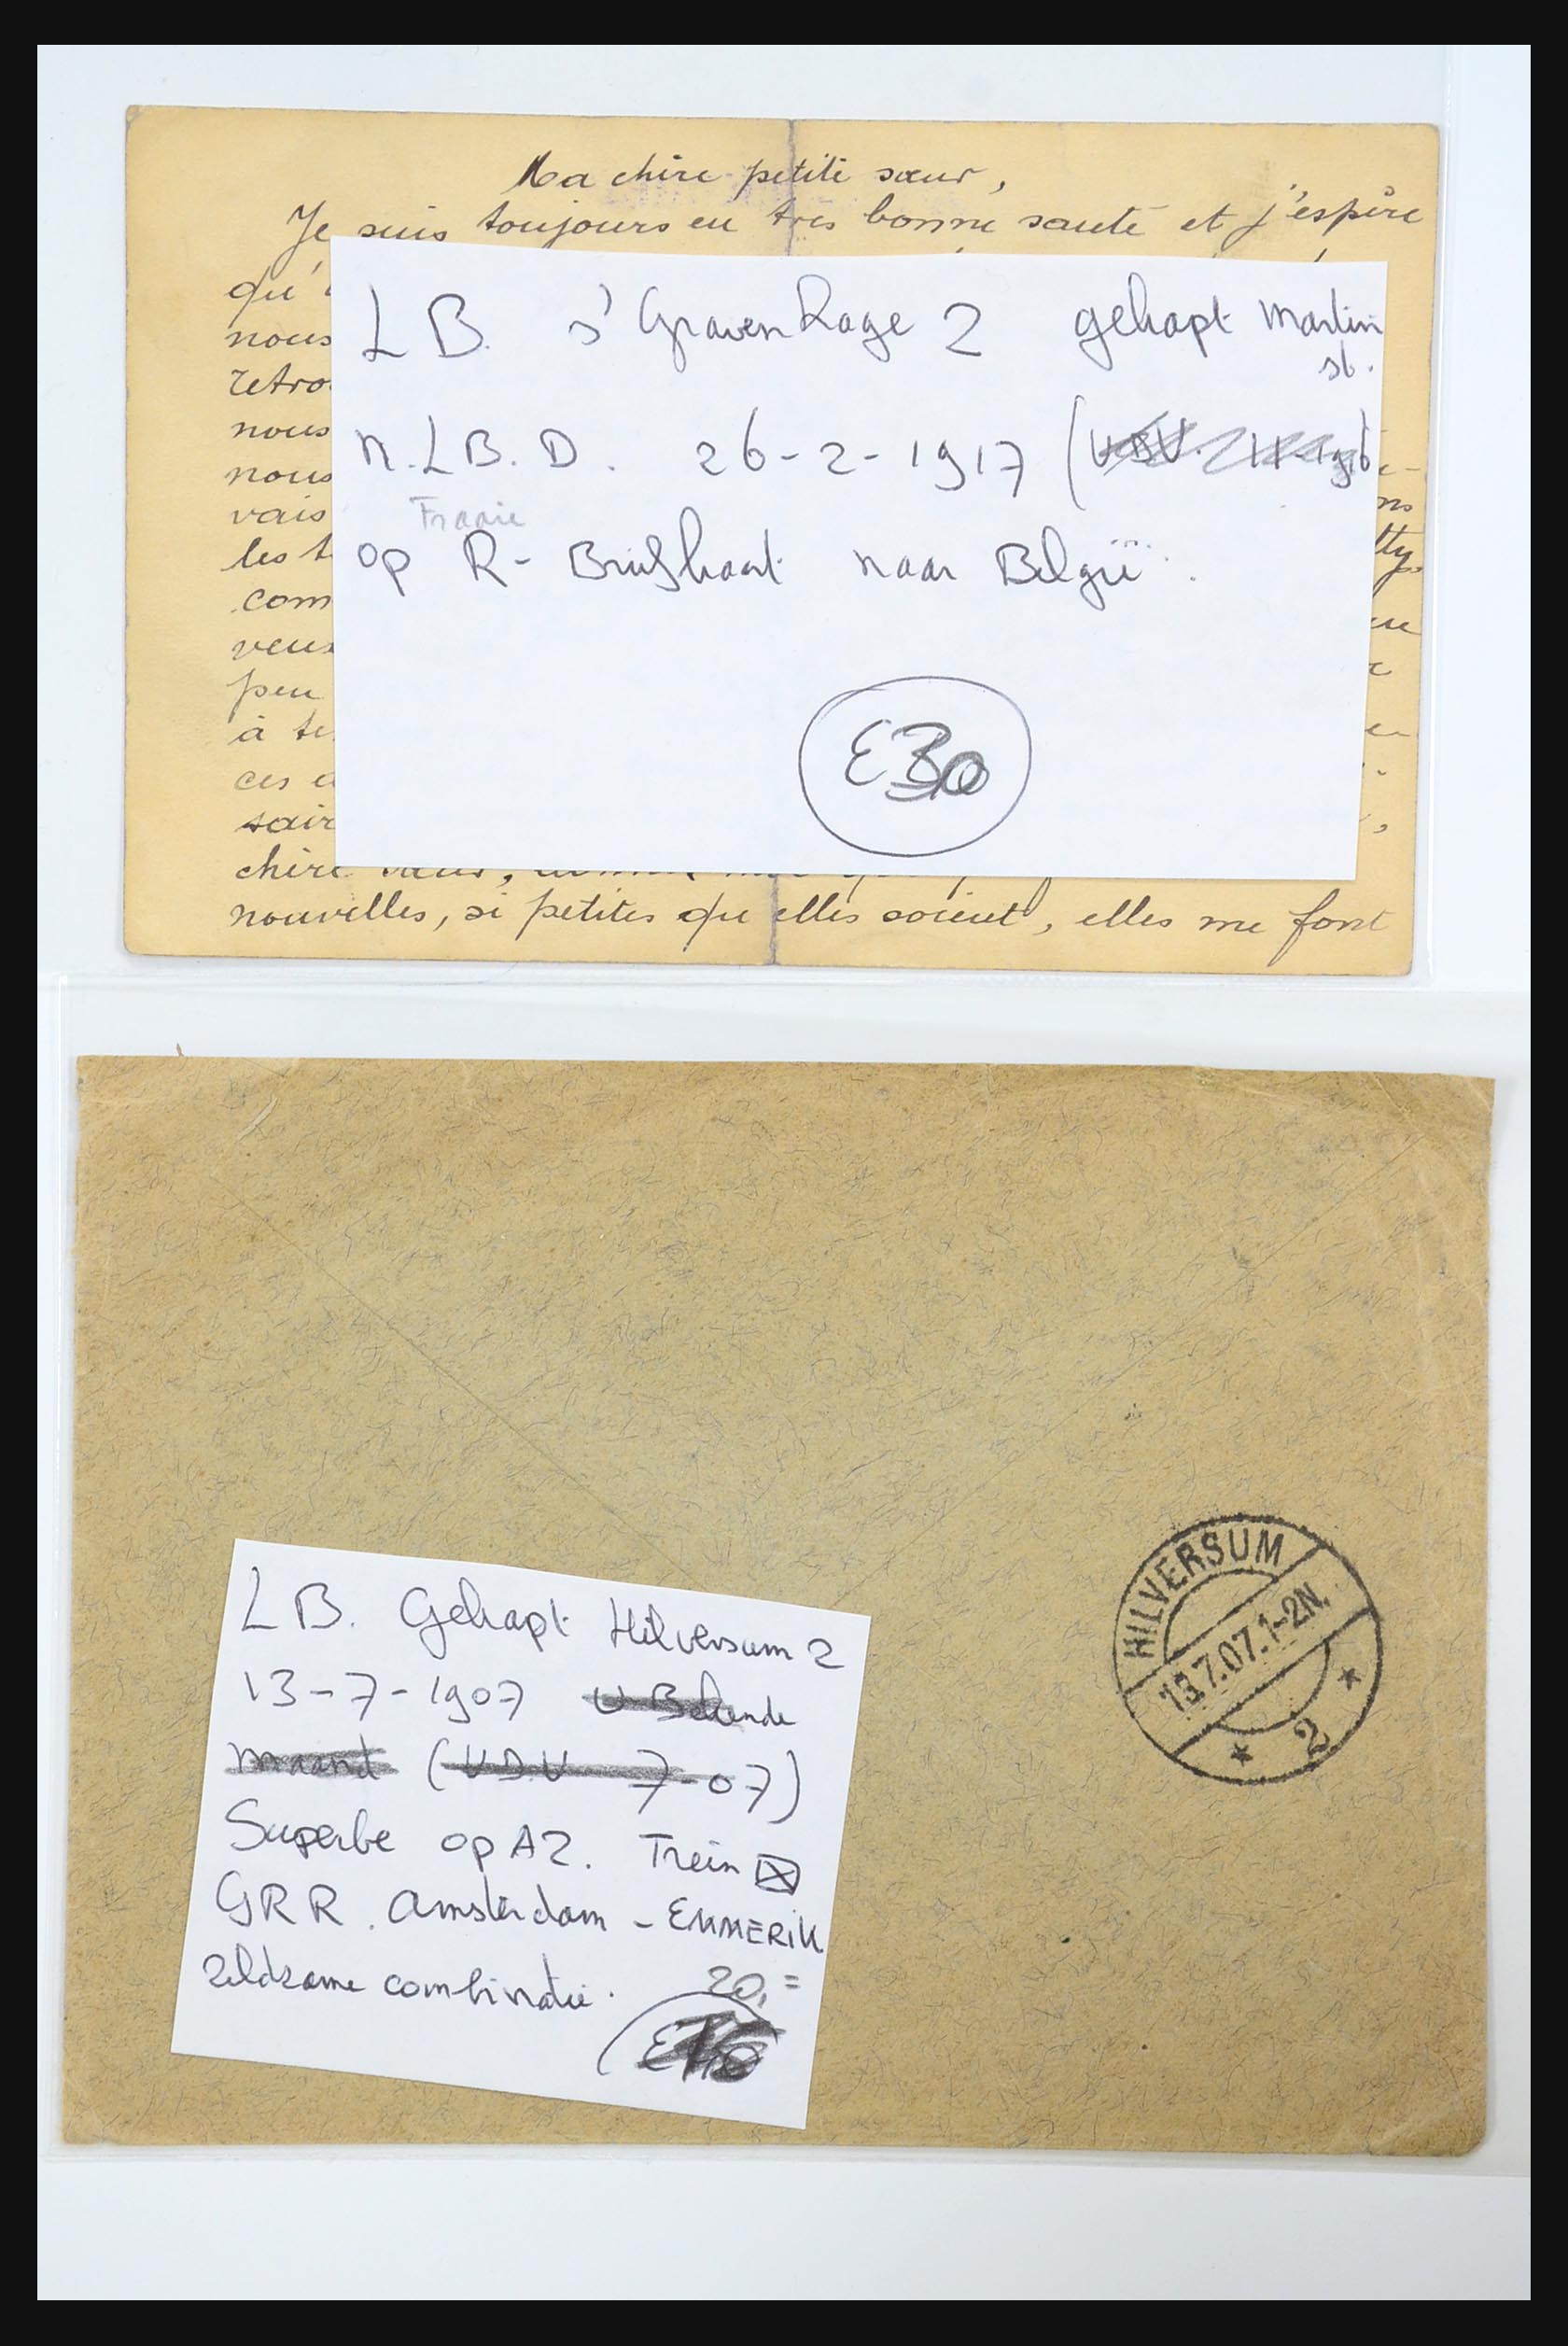 Ma chère petite sœur,
Je suis toujours en très bonne santé et j'espère
qu'
nous
retro
nous
nous
vais
les t
com
veux
peu
à te
ces
soir
chère sœur,
nouvelles, si petites qu'elles soient, elles me font
LB. s' GravenHage 2 gekapt Martin
st.
N.LB.D. 26-2-1917 (
Fraaie
op R- Briefkaart naar België.
LB. Gekapt Hilversum 2
13-7-1907 Bekende
maand (V.D.V 7-07)
Superbe op A2. Trein
GRR. Amsterdam - EMMERIK
Zeldzame combinatie.
20,=
HILVERSUM
13.7.07.1-2N.
* 2 *